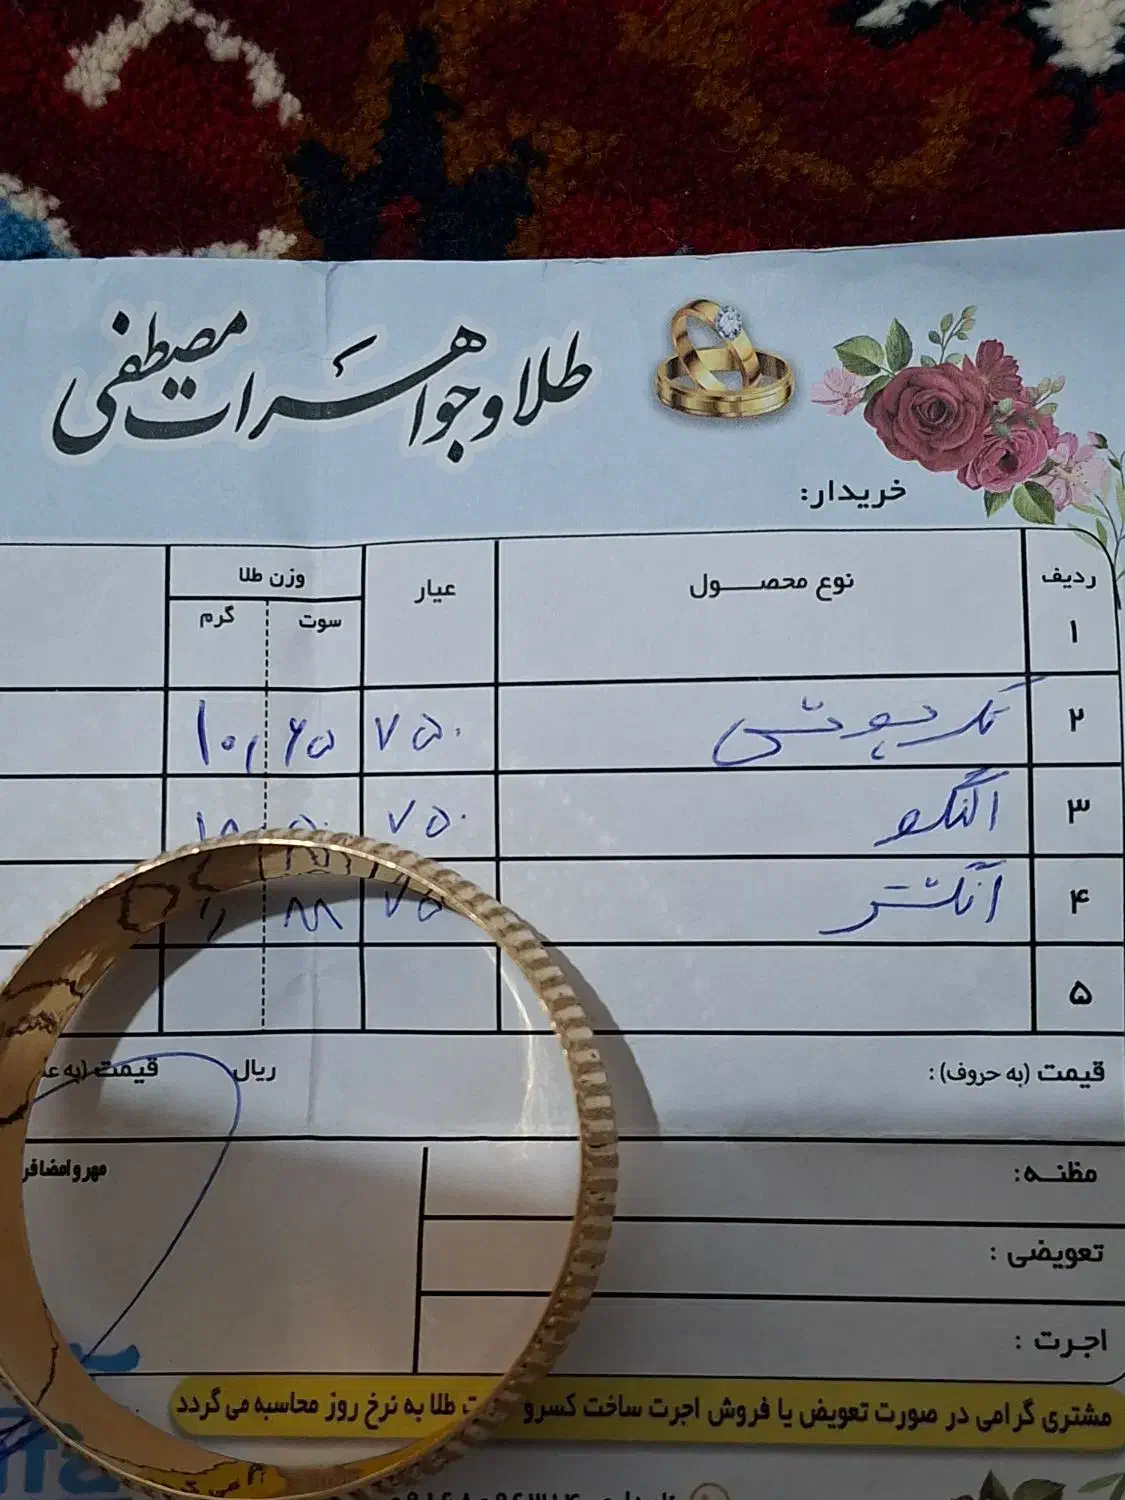 طلا و جواهرات مصطفی
خریدار:
ردیف نوع محصول عیار وزن طلا
سوت گرم
۱
۲ تک پوش ۷۵۰ ۶۵ ۱۰,
۳ النگو ۷۵۰
۴ انگشتر ۷۵ ۸۸
۵
قیمت (به حروف): ریال قیمت (به
مظنه: مهر و امضا
تعویضی:
اجرت:
مشتری گرامی در صورت تعویض یا فروش اجرت ساخت کسر و طلا به نرخ روز محاسبه می گردد